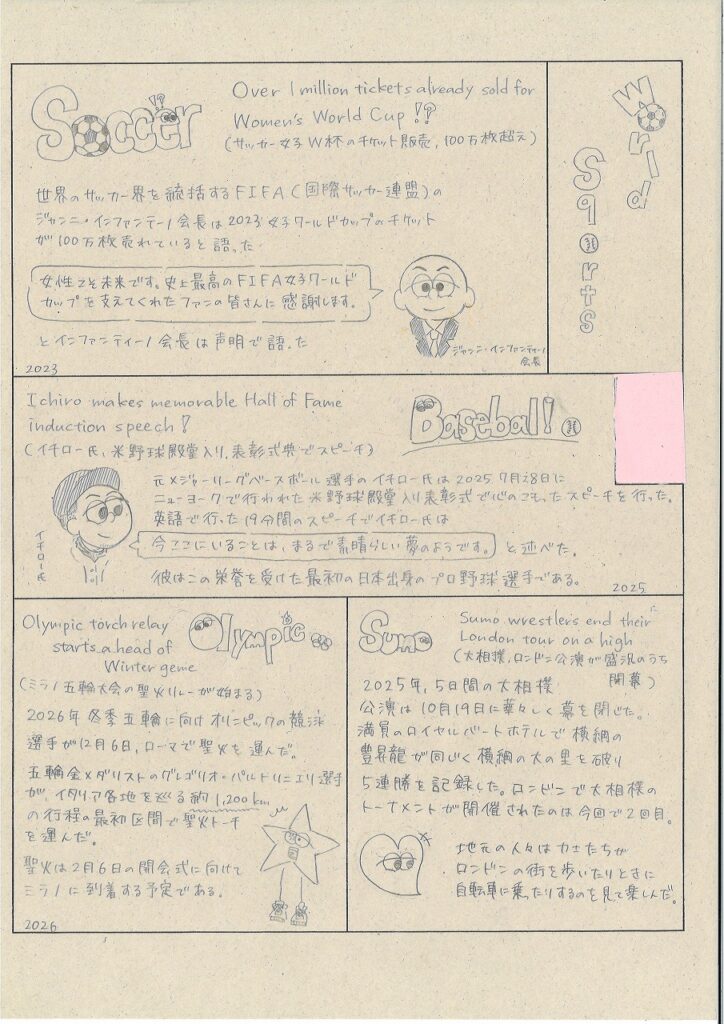 World Sports
Soccer!?
Over 1 million tickets already sold for
Women's World Cup !?
(サッカー女子W杯のチケット販売, 100万枚超え)
世界のサッカー界を統括するFIFA(国際サッカー連盟)の
ジャンニ・インファンティーノ会長は2023女子ワールドカップのチケット
が100万枚売れていると語った.
女性こそ未来です。史上最高のFIFA女子ワールド
カップを支えてくれたファンの皆さんに感謝します。
ジャンニ・インファンティーノ
会長
とインファンティーノ会長は声明で語った
2023
Ichiro makes memorable Hall of Fame
induction speech!
Baseball!
(イチロー氏, 米野球殿堂入り, 表彰式典でスピーチ)
元メジャーリーグベースボール選手のイチロー氏は2025 7月28日に
ニューヨークで行われた米野球殿堂入り表彰式で心のこもったスピーチを行った。
英語で行った19分間のスピーチでイチロー氏は
今ここにいることは、まるで素晴らしい夢のようです。と述べた.
イチロー氏
彼はこの栄誉を受けた最初の日本出身のプロ野球選手である。
2025
Olympic torch relay
starts ahead of
Winter geme
Olympic
(ミラノ五輪大会の聖火リレーが始まる)
2026年冬季五輪に向けオリニピックの競泳
選手が12月6日, ローマで聖火を運んだ。
五輪金メダリストのグレゴリオ・パルトリニエリ選手
が, イタリア各地を巡る約1,200km
の行程の最初区間で聖火トーチ
を運んだ。
聖火は2月6日の開会式に向けて
ミラノに到着する予定である.
2026
Sumo
Sumo wrestlers end their
London tour on a high
(大相撲, ロンドン公演が盛況のうち
開幕)
2025年, 5日間の大相撲
公演は10月19日に華々しく幕を閉じた。
満員のロイヤルバートホテルで横綱の
豊昇龍が同じく横綱の大の里を破り
5連勝を記録した。ロンドンで大相撲の
トーナメントが開催されたのは今回で2回目。
地元の人々は力士たちが
ロンドンの街を歩いたりときに
自転車に乗ったりするのを見て楽しんだ。